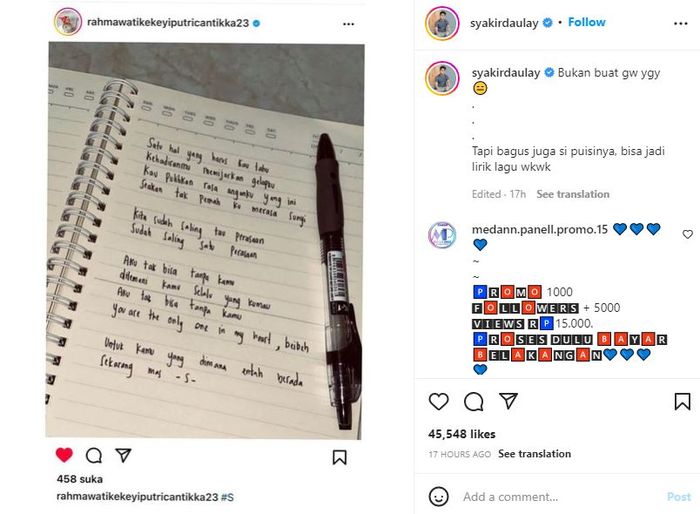 rahmawatikekeyiputricantikka23
Satu hal yang harus kau tahu
Kehadiranmu memijarkan gelapku
Kau pulihkan rasa anganku yang ini
Seakan tak pernah ku merasa sunyi
Kita sudah saling tau perasaan
Sudah saling satu perasaan
Aku tak bisa tanpa kamu
ditemeni kamu selalu yang kumau
Aku tak bisa tanpa kamu
you are the only one in my heart, beibeh
Untuk kamu yang dimana entah berada
Sekarang mas -S-
458 suka
rahmawatikekeyiputricantikka23 #S
syakirdaulay • Follow
syakirdaulay Bukan buat gw ygy
😑
.
.
.
Tapi bagus juga si puisinya, bisa jadi
lirik lagu wkwk
Edited · 17h See translation
medann.panell.promo.15 💙💙💙
💙
~
~
🅿🆁🅾🅼🅾 1000
🅵🅾🅻🅻🅾🆆🅴🆁🆂 + 5000
🆅🅸🅴🆆🆂 🆁🅿15.000.
🅿🆁🅾🆂🅴🆂 🅳🆄🅻🆄 🅱🅰🆈🅰🆁
🅱🅴🅻🅰🅺🅰🅽🅶🅰🅽💙💙💙
💙
45,548 likes
17 HOURS AGO See translation
Add a comment... Post